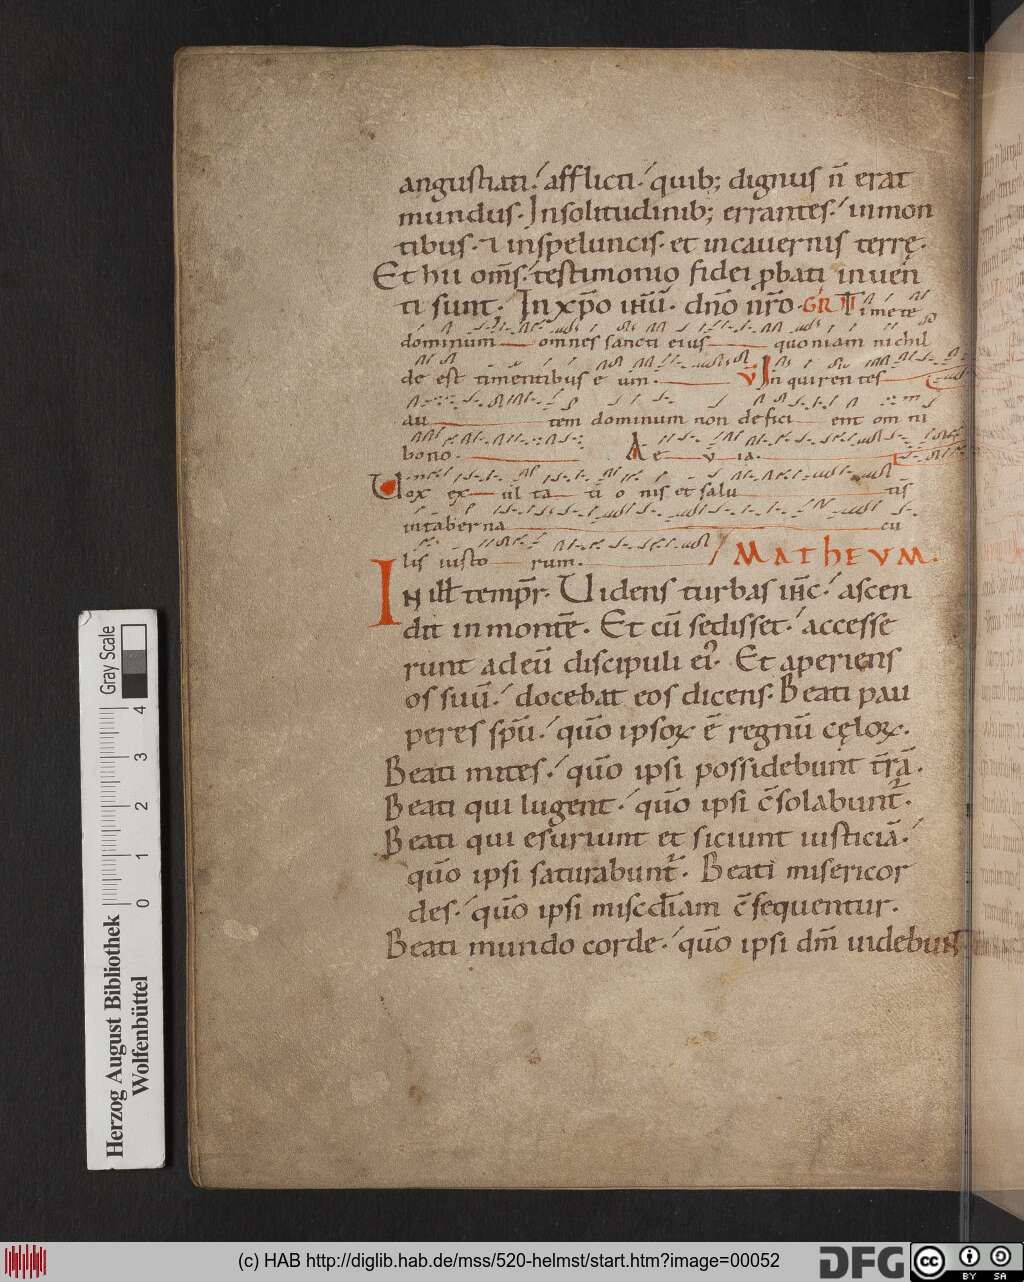 angustiati. afflicti. quib; dignus n̄ erat
mundus. Insolitudinib; errantes. inmon
tibus. ⁊ inspeluncis. et incauernis terrę.
Et hii om̄s. testimonio fidei ꝓbati inuen̄
ti sunt; In xp̄o ih̄ū. dn̄o nr̄o. GR Timete
dominum omnes sancti eius quoniam nichil
de est timentibus e um. V̄ Inquirentes
au tem dominum non defici ent om ni
bono. A e v ia.
Uox ex ul ta ti o nis et salu tis
intaberna cu
lis iusto rum. MATHEVM.
IN illł temp̄r. Uidens turbas ih̄c. ascen
dit inmontē. Et cū sedisset. accesse
runt adeū discipuli ei᾽. Et aperiens
os suū. docebat eos dicens. Beati pau
peres sp̄u. qūo ipsoꝝ ē regnū cęloꝝ.
Beati mites. qūo ipsi possidebunt t̄rā.
Beati qui lugent. qūo ipsi c̄solabunt̄.
Beati qui esuriunt et siciunt iusticiā.
qūo ipsi saturabunt̄. Beati misericor
des. qūo ipsi misc̄diam c̄sequentur.
Beati mundo corde. qūo ipsi dm̄ uidebunt
Gray Scale
4 3 2 1 0
Herzog August Bibliothek
Wolfenbüttel
(c) HAB http://diglib.hab.de/mss/520-helmst/start.htm?image=00052
DFG
cc
BY SA